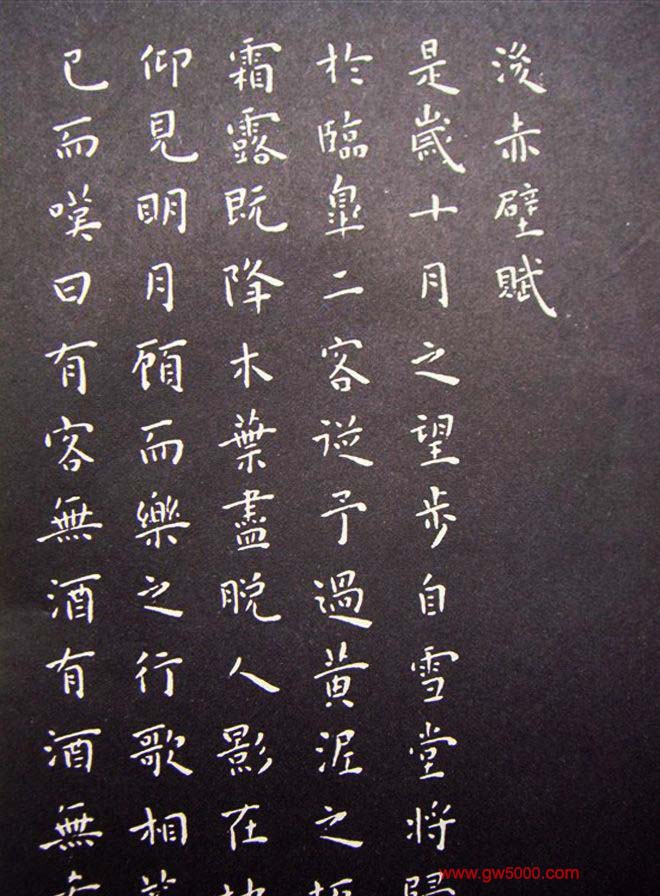 後赤壁賦
是歲十月之望步自雪堂將歸
於臨皋二客從予過黃泥之
霜露既降木葉盡脫人影在地
仰見明月顧而樂之行歌相答
已而嘆曰有客無酒有酒無
www.gw5000.com